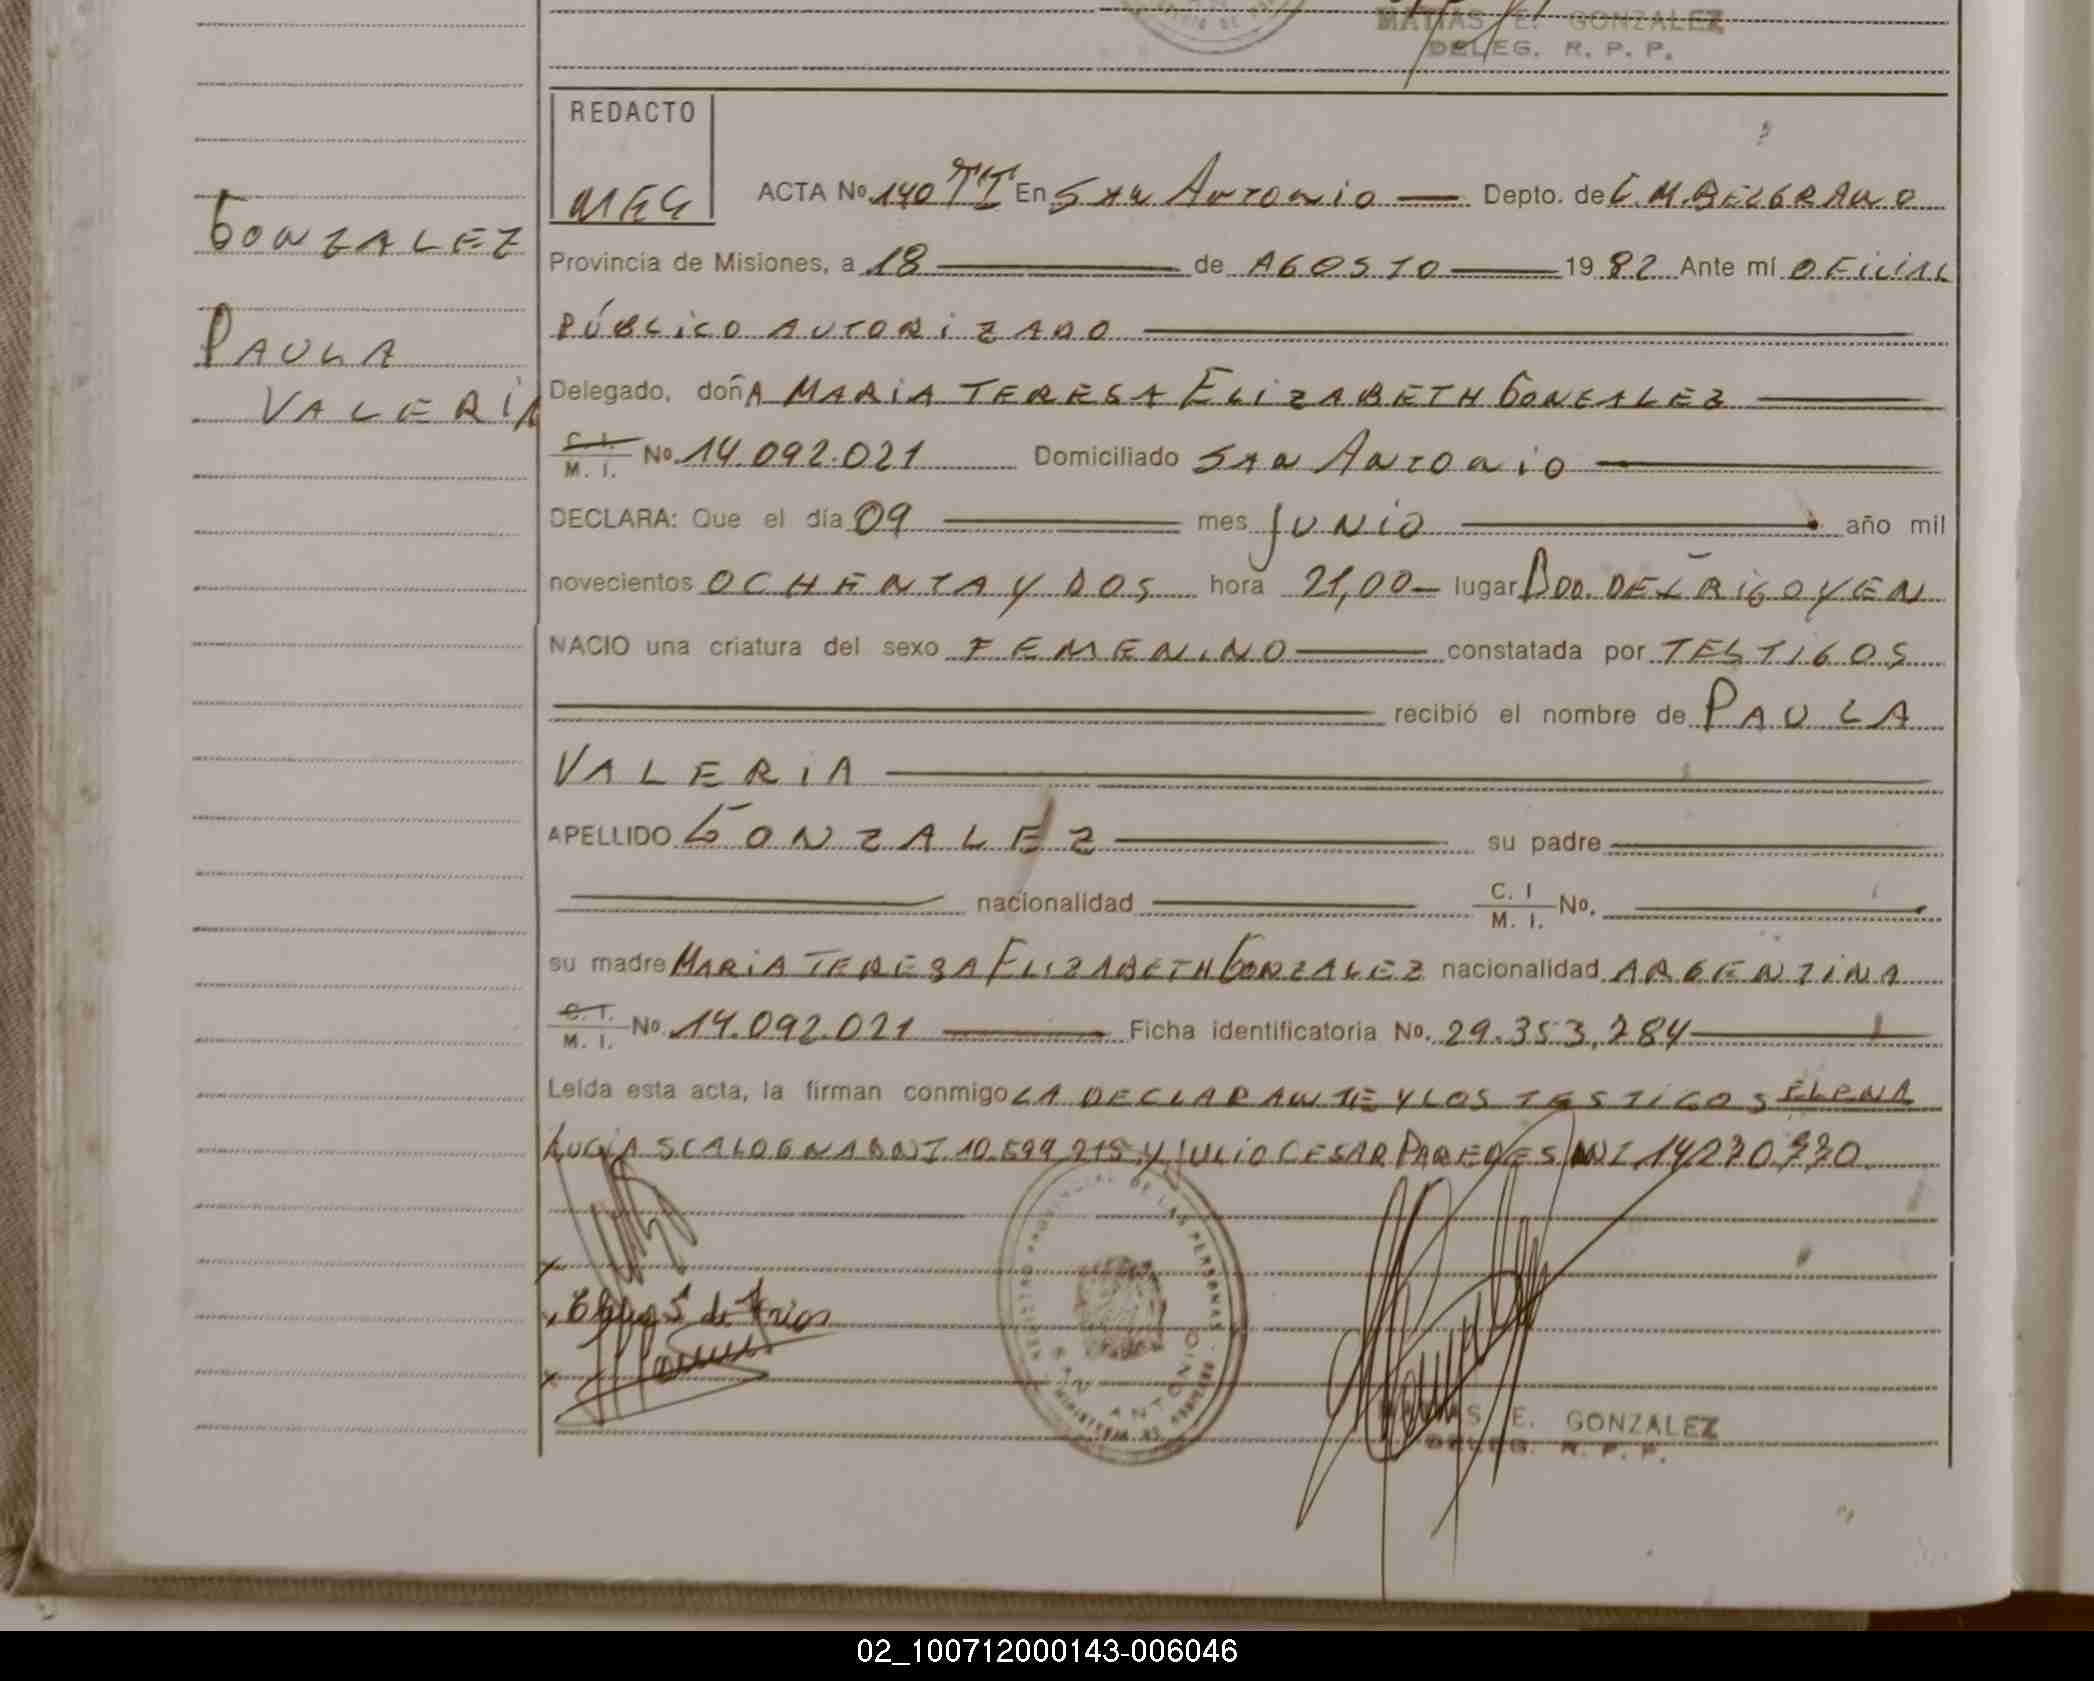 MATIAS E. GONZALEZ
DELEG. R. P. P.
REDACTO
MEG
ACTA No. 140 TI En San Antonio Depto. de G. M. BELGRANO
Provincia de Misiones, a 18 de AGOSTO 1982 Ante mí OFICIAL
PÚBLICO AUTORIZADO
Delegado, doñA MARIA TERESA ELIZABETH GONZALEZ
C. I. M. I. No. 14.092.021 Domiciliado SAN ANTONIO
DECLARA: Que el día 09 mes JUNIO año mil
novecientos OCHENTA Y DOS hora 21,00 lugar BDO. DE IRIGOYEN
NACIO una criatura del sexo FEMENINO constatada por TESTIGOS
recibió el nombre de PAULA
VALERIA
APELLIDO GONZALEZ su padre
nacionalidad C. I M. I. No.
su madre MARIA TERESA ELIZABETH GONZALEZ nacionalidad ARGENTINA
C. I. M. I. No. 14.092.021 Ficha identificatoria No. 29.353.284
Leída esta acta, la firman conmigo LA DECLARANTE Y LOS TESTIGOS ELENA
LUCÍA SCALOGNA DNI 10.599.215 Y JULIO CESAR PAREDES DNI
GONZALEZ
PAULA
VALERIA
REGISTRO PROVINCIAL DE LAS PERSONAS
SAN ANTONIO
S. de Frias
MATIAS E. GONZALEZ
DELEG. R. P. P.
02_100712000143-006046